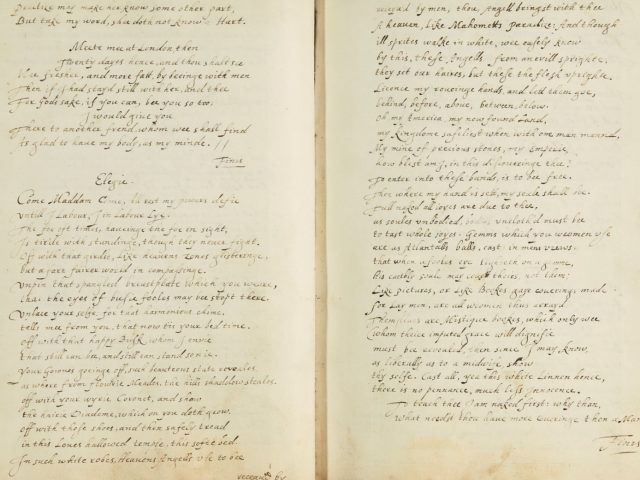 Practize may make her know some other part,
But take my word, shee doth not know a Hart.
Meete mee at London then
Twenty dayes hence, and thou shalt see
Mee fresher, and more fatt, by beeinge with men
Then if I had stayd still with her, and thee
For Gods sake, if you can, bee you so too;
I would give you
There to another frend, whom wee shall find
As glad to have my body, as my minde. //
Finis
Elegie.
Come Maddam Come, all rest my powers defie
Untill I Labour, I in Labour Lye.
The foe oft times, haveinge the foe in sight,
Is tirde with standinge, though they never fight.
Off with that girdle, Like heavens zones glisteringe,
But a farr fairer world in compassinge.
Unpin that spangled breastplate which you weare,
That the eyes of busie fooles may bee stopt there.
Unlace your selfe, for that harmonious chime,
tells mee from you, that now tis your bed time.
off with that happy Buske whom I envie
that still can bee, and still can stand so nie.
Your Gownes goeinge off, such beuteous state reveales,
as where from flowrie Meades, the hills shaddow steales.
off with your wyrie Coronet, and show
the hairie Diademe, which on you doth grow.
off with those shoes, and then safely tread
in this Loves hallowed temple, this soft bed.
In such white robes, Heavens Angells use to bee
receavd by
receavd by men, thou Angell bringst with thee
A heaven, Like Mahometts paradice; And though
ill sprites walke in white, wee easely know
by this, these Angells from an evill sprighte,
they set our haires, but these the flesh uprighte.
Licence my roveinge hands, and let them goe,
behind, before, above, between, below.
Oh my America, my now found Land,
my kingdome safeliest when with one man mannd.
My mine of precious stones, my Emperie,
how blest am I, in this discoveringe thee?
To enter into these bands, is to bee free.
Ther where my hand is sett, my seale shall be.
Full naked all joyes are due to thee,
as soules unbodied, bodies unclothd must bee
to tast whole joyes. Gemms which you weomen use
are as Atlantalls balls, cast in mens views.
that when a fooles eye lighteth on a gemme,
his earthly soule may covet theirs, not them:
Like pictures, or Like Bookes gaye coveringe made
for Lay men, are all women thus arrayd
Themselves are Mistique bookes, which only wee
whom theire imputed grace will dignifie
must bee revealed, then since I may know,
as liberally as to a midwife show
thy selfe. Cast all, yea this white Linnen hence,
there is no pennance, much less Innocence.
To teach thee I am naked first: why than,
What needst thou have more coveringe then a Man
Finis